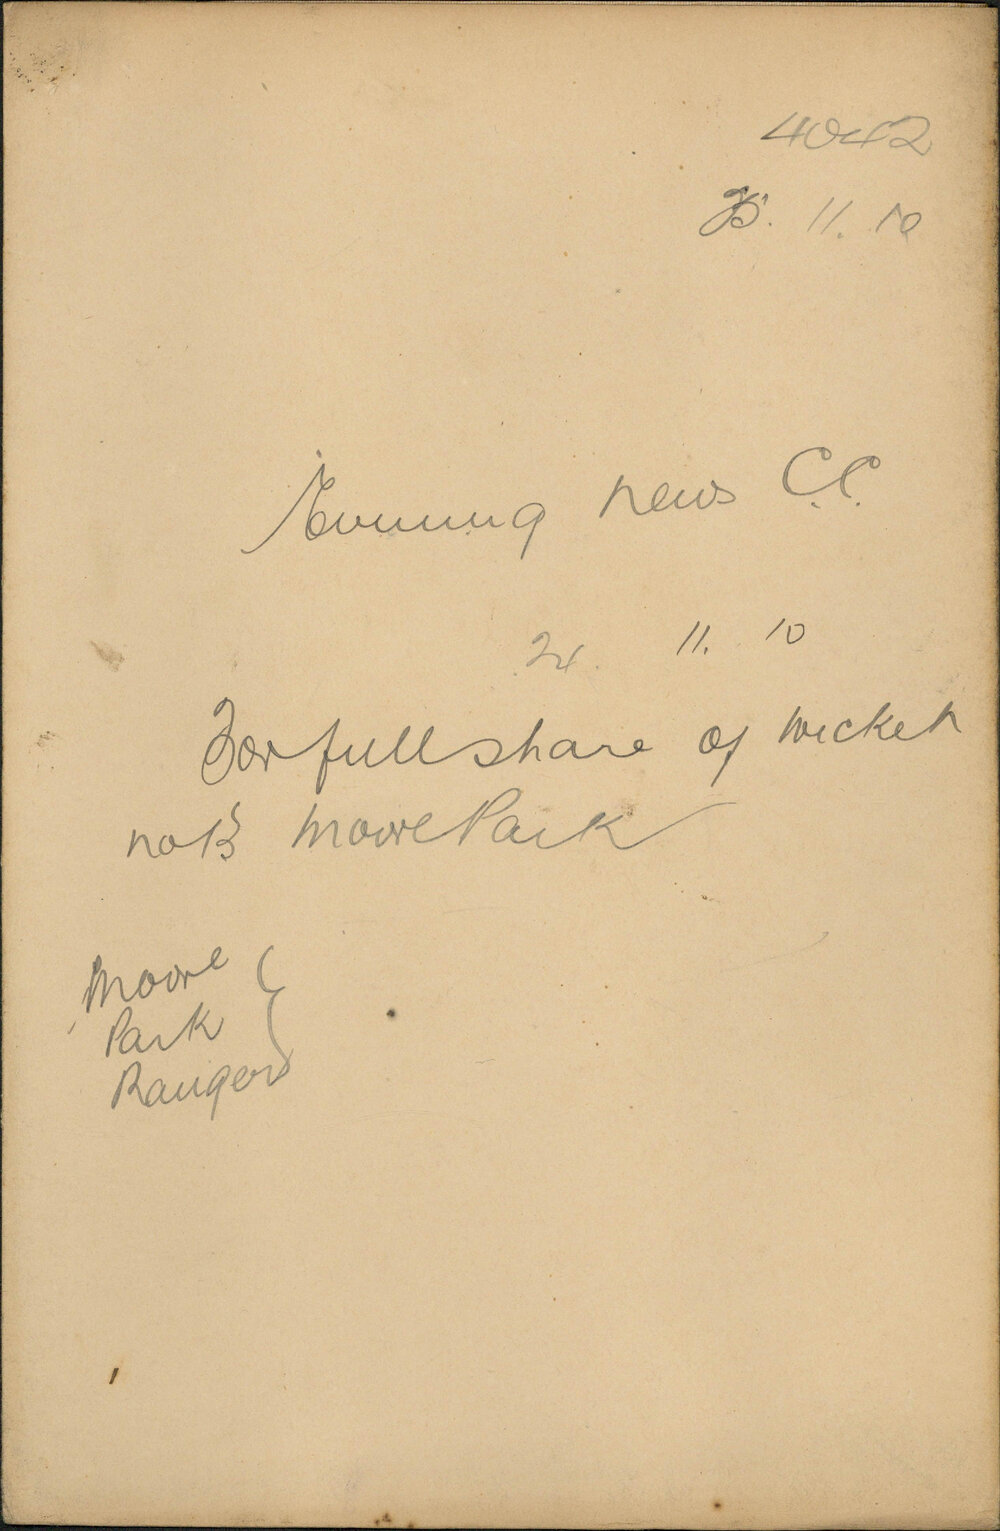 4042
25. 11. 10
Evening News C.C.
24. 11. 10
For full share of wicket
no 13 Moore Park
Moore
Park
Ranger